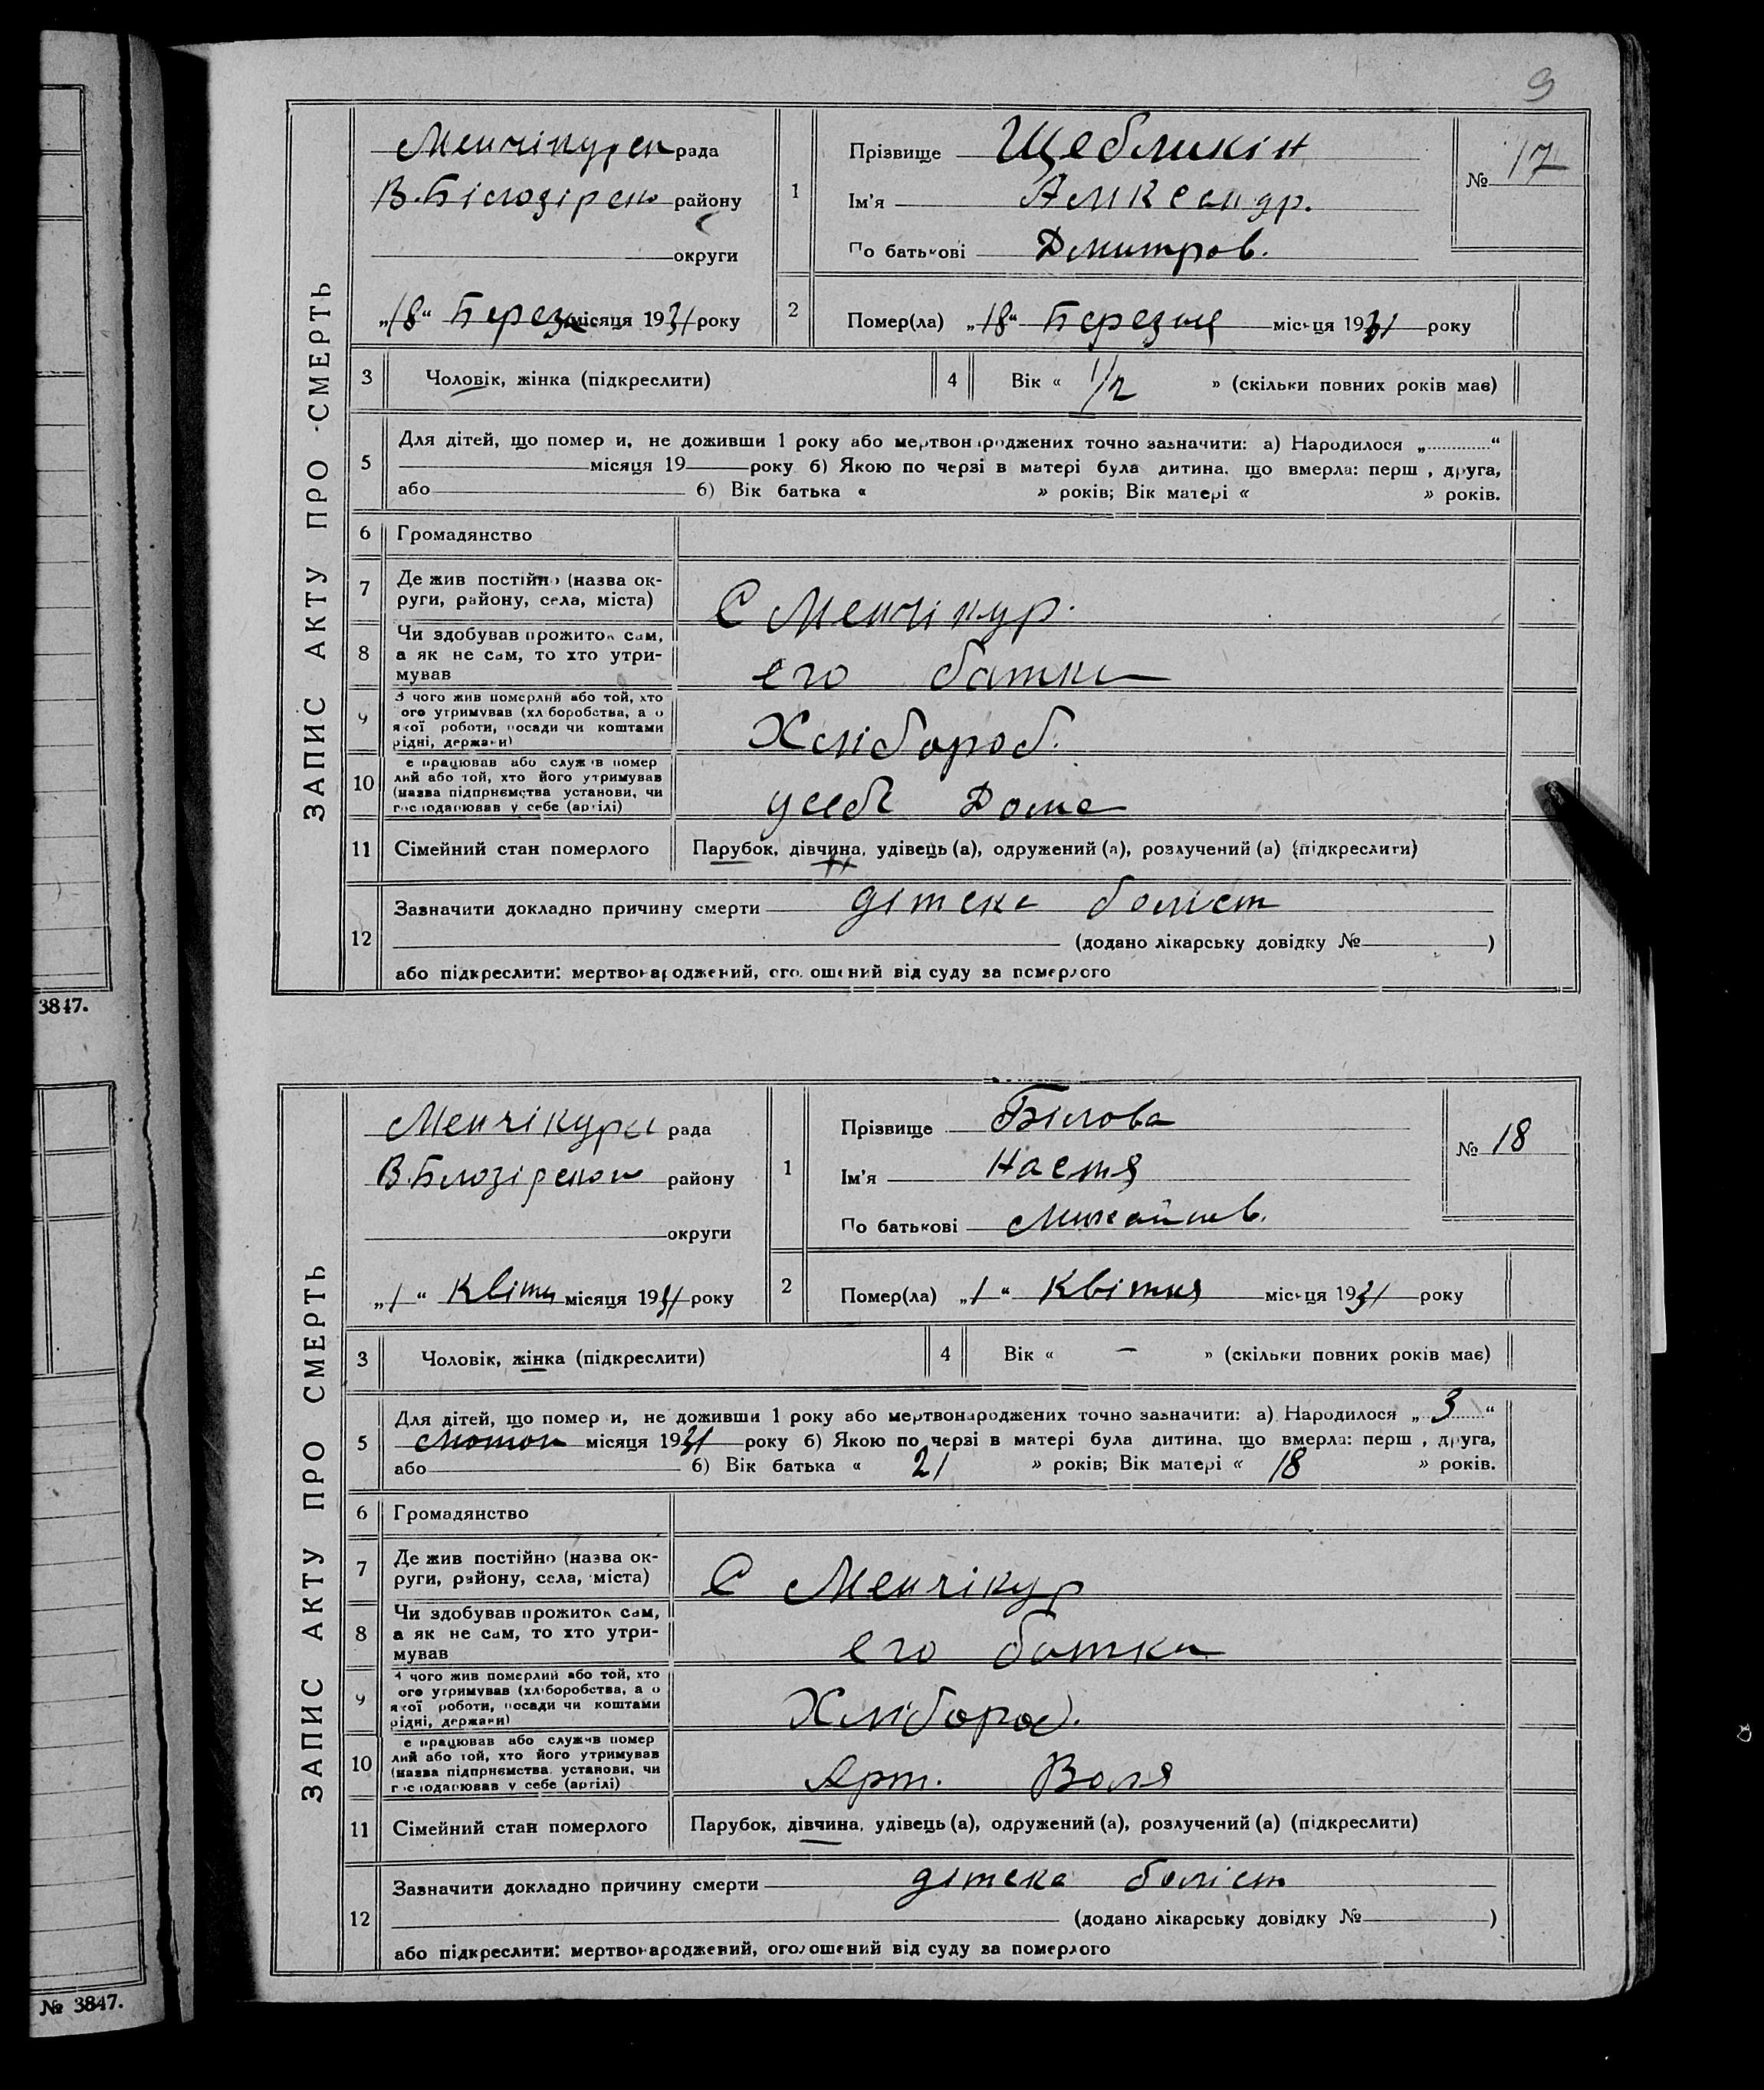 9
ЗАПИС АКТУ ПРО СМЕРТЬ
Менчікурен рада
В.Білозірсько району
округи
„18“ Березн місяця 1931 року
1
Прізвище Щебликін
Ім'я Александр.
По батькові Дмитров.
№ 17
2
Помер(ла) „18“ Березня місяця 1931 року
3 Чоловік, жінка (підкреслити)
4 Вік « 1/2 » (скільки повних років має)
5 Для дітей, що померли, не доживши 1 року або мертвонароджених точно зазначити: а) Народилося „ “
місяця 19 року б) Якою по черзі в матері була дитина, що вмерла: перша, друга,
або б) Вік батька « » років; Вік матері « » років.
6 Громадянство
7 Де жив постійно (назва ок-
руги, району, села, міста)
С Менчікур.
8 Чи здобував прожиток сам,
а як не сам, то хто утри-
мував
его батки
9 З чого жив померлий або той, хто
ого утримував (хліборобства, а о
якої роботи, посади чи коштами
рідні, держави)
Хлібороб.
10 е працював або служив помер
лий або той, хто його утримував
(назва підприємства установи, чи
господарював у себе (артілі)
усебе Доме
11 Сімейний стан померлого
Парубок, дівчина, удівець (а), одружений (а), розлучений (а) (підкреслити)
12 Зазначити докладно причину смерти дітскаболіст
(додано лікарську довідку № )
або підкреслити: мертвонароджений, оголошений від суду за померлого
3847.
ЗАПИС АКТУ ПРО СМЕРТЬ
Менчікури рада
В.Білозірсько району
округи
„1“ Квітн місяця 1931 року
1
Прізвище Білова
Ім'я Настя
По батькові Михайлов.
№ 18
2
Помер(ла) „1“ Квітня місяця 1931 року
3 Чоловік, жінка (підкреслити)
4 Вік « – » (скільки повних років має)
5 Для дітей, що померли, не доживши 1 року або мертвонароджених точно зазначити: а) Народилося „3“
Лютого місяця 1931 року б) Якою по черзі в матері була дитина, що вмерла: перша, друга,
або б) Вік батька « 21 » років; Вік матері « 18 » років.
6 Громадянство
7 Де жив постійно (назва ок-
руги, району, села, міста)
С Менчікур
8 Чи здобував прожиток сам,
а як не сам, то хто утри-
мував
его батки
9 З чого жив померлий або той, хто
ого утримував (хліборобства, а о
якої роботи, посади чи коштами
рідні, держави)
Хлібороб.
10 е працював або служив помер
лий або той, хто його утримував
(назва підприємства установи, чи
господарював у себе (артілі)
Арт. Воля
11 Сімейний стан померлого
Парубок, дівчина, удівець (а), одружений (а), розлучений (а) (підкреслити)
12 Зазначити докладно причину смерти дітска болість
(додано лікарську довідку № )
або підкреслити: мертвонароджений, оголошений від суду за померлого
№ 3847.